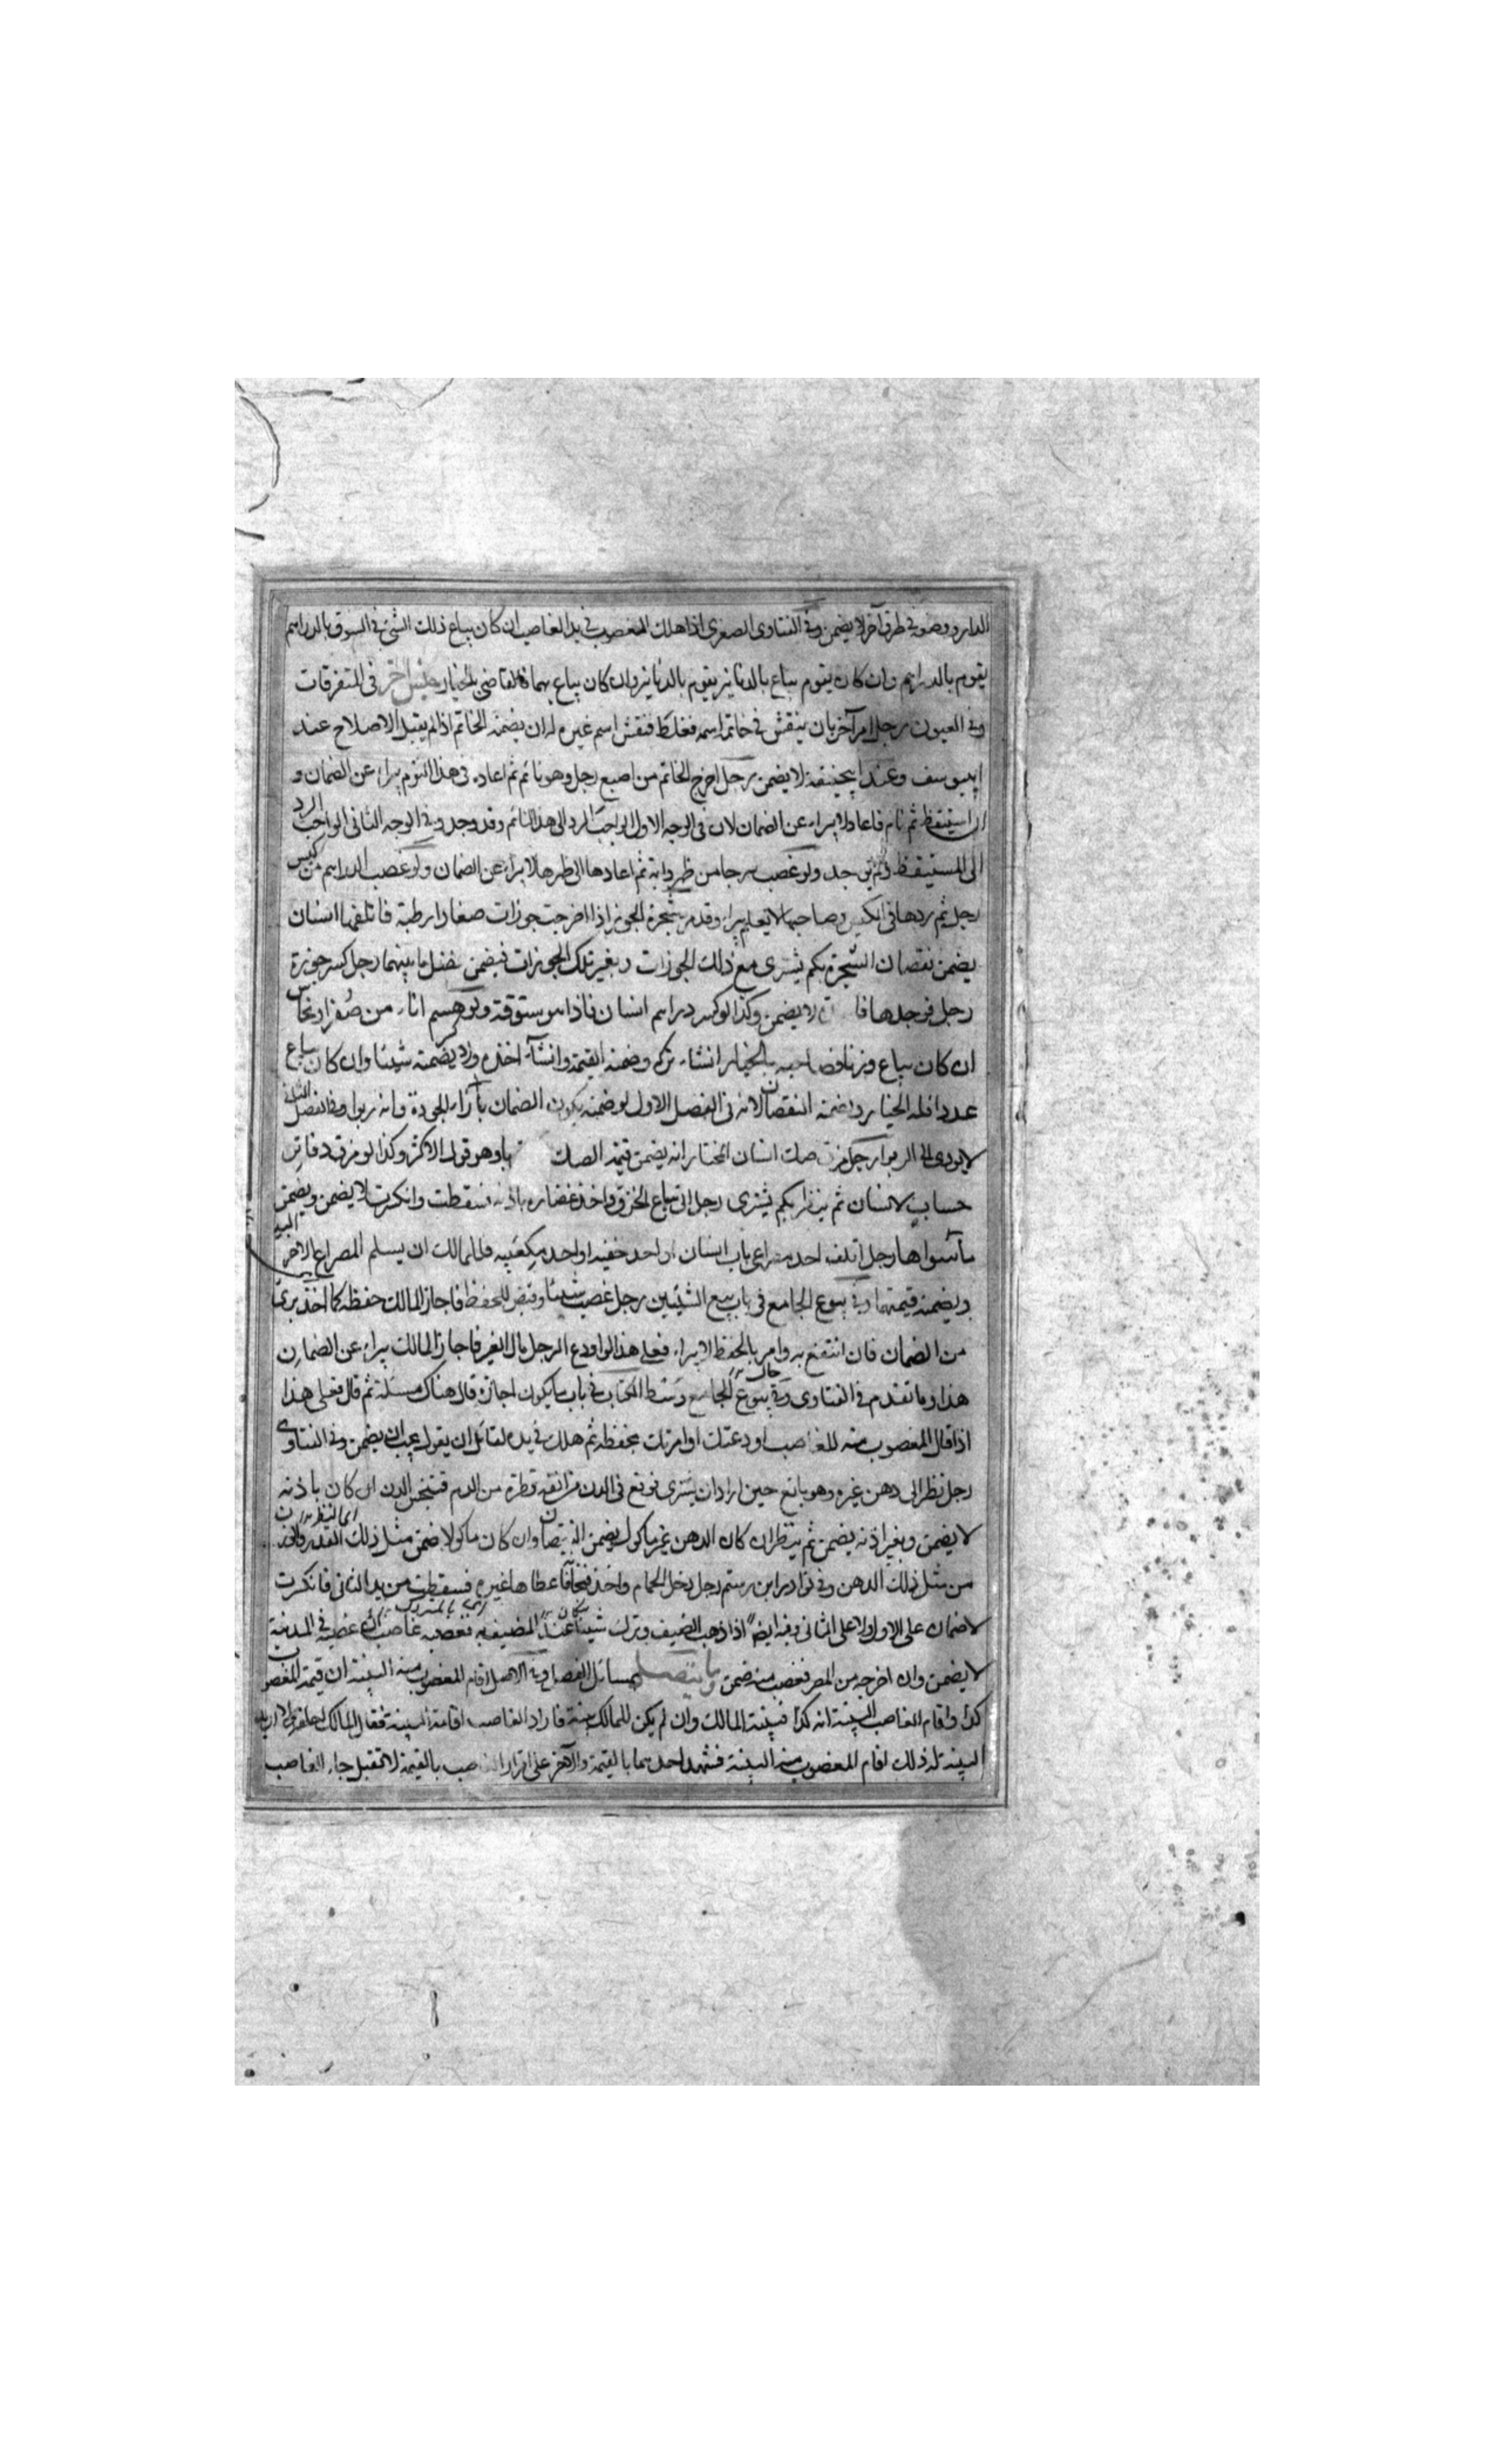 الدار دوضوء في طرق آخر لا يضمن وفي الفتاوى الصغرى اذا هلك المغصوب في يد الغاصب ان كان يباع ذلك الشئ في السوق بالدراهم
يقوم بالدراهم وان كان يقوم يباع بالدنانير يقوم بالدنانير وان كان يباع بهما فالقاضي بالخيار جنس آخر في المتفرقات
وفي العيون رجل امر آخر بان ينقش في خاتم اسمه فغلط فنقش اسم غيره له ان يضمنه الخاتم اذا لم يقبل الاصلاح عند
ابيوسف وعند ابيحنيفة لا يضمن رجل اخرج الخاتم من اصبع رجل وهو نائم ثم اعاده في هذا النوم يبراء عن الضمان و
ان استيقظ ثم نام فاعاد لا يبراء عن الضمان لان في الوجه الاول الواجب الرد الى هذا النائم وقد وجد وفي الوجه الثاني الواجب الرد
الى المستيقظ ولم يوجد ولو غصب سرجا من ظهر دابة ثم اعادها الى ظهرها لا يبراء عن الضمان ولو غصب الدراهم من كيس
رجل ثم ردها في الكيس وصاحبها لا يعلم يبراء وقد مر شجرة الجوز اذا اخرجت جوزات صغارا رطبة فاتلفها انسان
يضمن نقصان الشجرة بكم يشترى مع ذلك الجوزات وبغير تلك الجوزات فيضمن فضل ما بينهما رجل كسر جوزة
رجل فوجدها لا يضمن وكذا لو كسر دراهم انسان فاذا هو ستوقة ولو هشم اناء من صفر او نحاس
ان كان يباع وزنا فصاحبه بالخيار ان شاء تركه وضمنه القيمة وان شاء اخذه ولا يضمنه شيئا وان كان يباع
عددا فله الخيار وضمنه النقصان لانه في الفصل الاول لو ضمنه يكون الضمان بازاء الجودة وانه ربوا وفي الفصل الثاني
لا يودي الى الربوا رجل مزق صك انسان المختار انه يضمن قيمة الصك وهو قول الاكثر وكذا لو مزق دفاتر
حساب لانسان ثم ينظر بكم يشترى رجل اتى بياع الخزق واخذ غضاره باذنه فسقطت وانكسرت لا يضمن ويضمن
ما سواها رجل اتلف احد مصراعي باب انسان او احد خفيه او احد مكعبيه فللمالك ان يسلم المصراع الآخر اليه
ويضمنه قيمتهما وفي بيوع الجامع في باب بيع الشيئين رجل غصب شيئا وقبض للحفظ فاجاز المالك حفظه كما اخذ برئ
من الضمان فان انتفع به وامر بالحفظ لا يبراء فعلى هذا لو اودع الرجل مال الغير فاجاز المالك يبراء عن الضمان
هذا وما تقدم في الفتاوى وفي بيوع الجامع وسط الكتاب في باب ما يكون اجازة قال هناك مسئلة ثم قال فعلى هذا
اذا قال المغصوب منه للغاصب اودعتك او امرتك بحفظه ثم هلك في يده لقائل ان يقول يجب ان يضمن وفي الفتاوى
رجل نظر الى دهن غيره وهو بائع حين اراد ان يشترى فوقع في الدن من انفه قطرة من الدم فتنجس الدن ان كان باذنه
لا يضمن وبغير اذنه يضمن ثم ينظر ان كان الدهن غير ماكول يضمن النقصان وان كان ماكولا ضمن مثل ذلك القدر
من مثل ذلك الدهن وفي نوادر ابن رستم رجل دخل الحمام واخذ فنجانا فاعطاها غيره فسقطت من يد الثاني فانكسرت
لا ضمان على الاول ولا على الثاني وفيه ايضا اذا ذهب الضيف وترك شيئا عند المضيف فغصبه غاصب ان غصبه في المدينة
لا يضمن وان اخرجه من المصر فغصب منه ضمن وما يتصل بمسائل الفصل وفي الاصل اقام المغصوب منه البينة ان قيمة المغصوب
كذا واقام الغاصب البينة انه كذا فبينة المالك وان لم يكن للمالك بينة فاراد الغاصب اقامة البينة فقال المالك احلفه ولا اريد
البينة له ذلك اقام المغصوب منه البينة فشهد احدهما بالقيمة والآخر على اقرار الغاصب بالقيمة لا تقبل جاء الغاصب